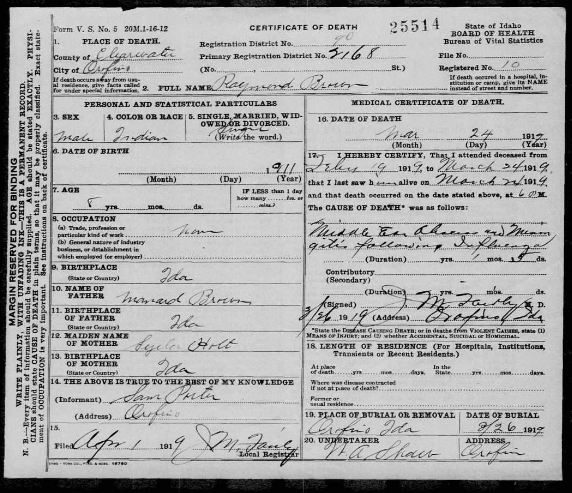 Form V. S. No. 5 20M.1-16-12
CERTIFICATE OF DEATH
25514
State of Idaho
BOARD OF HEALTH
Bureau of Vital Statistics
1. PLACE OF DEATH.
County of Clearwater
City of Orofino
If death occurs away from usual residence, give facts called for under special information.
Registration District No. 90
Primary Registration District No. 2168
(No. St.)
File No.
Registered No. 10
If death occurred in a hospital, institution or camp, give its NAME instead of street and number.
2. FULL NAME Raymond Brown
PERSONAL AND STATISTICAL PARTICULARS
3. SEX
Male
4. COLOR OR RACE
Indian
5. SINGLE, MARRIED, WIDOWED OR DIVORCED.
Single
(Write the word.)
6. DATE OF BIRTH
1911
(Month) (Day) (Year)
7. AGE
8 yrs. mos. days
IF LESS than 1 day how many hrs. or min.?
8. OCCUPATION
(a) Trade, profession or particular kind of work
none
(b) General nature of industry business, or establishment in which employed (or employer)
9. BIRTHPLACE
(State or Country) Ida
10. NAME OF FATHER Brown
11. BIRTHPLACE OF FATHER
(State or Country) Ida
12. MAIDEN NAME OF MOTHER Holt
13. BIRTHPLACE OF MOTHER
(State or Country) Ida
14. THE ABOVE IS TRUE TO THE BEST OF MY KNOWLEDGE
(Informant) Sam Porter
(Address) Orofino
15.
Filed Apr 1 1919 J M Fairly
Local Registrar
MEDICAL CERTIFICATE OF DEATH.
16. DATE OF DEATH
Mar 24 1919
(Month) (Day) (Year)
17. I HEREBY CERTIFY, That I attended deceased from
Feby 19 1919, to March 24 1919
that I last saw him alive on March 24 1919
and that death occurred on the date stated above, at 6 P M.
The CAUSE OF DEATH* was as follows:
Middle Ear Abscess and Menin
gitis following Influenza
(Duration) yrs. mos. ds.
Contributory
(Secondary)
(Duration) yrs. mos. ds.
(Signed) J. M. Fairly M. D.
3/26 1919 (Address) Orofino Ida
*State the DISEASE CAUSING DEATH; or in deaths from VIOLENT CAUSES, state (1) MEANS OF INJURY; and (2) whether ACCIDENTAL, SUICIDAL OR HOMICIDAL.
18. LENGTH OF RESIDENCE (For Hospitals, Institutions, Transients or Recent Residents.)
At place of death yrs. mos. days. In the State yrs. mos. days
Where was disease contracted
if not at place of death?
Former or
usual residence
19. PLACE OF BURIAL OR REMOVAL
Orofino Ida
DATE OF BURIAL
3/26 1919
20. UNDERTAKER
W A Shaw
ADDRESS
Orofino
MARGIN RESERVED FOR BINDING
WRITE PLAINLY, WITH UNFADING INK—THIS IS A PERMANENT RECORD.
N. B.—Every item of information should be carefully supplied. AGE should be stated EXACTLY. PHYSICIANS should state CAUSE OF DEATH in plain terms, so that it may be properly classified. Exact statement of OCCUPATION is very important. See instructions on back of certificate.